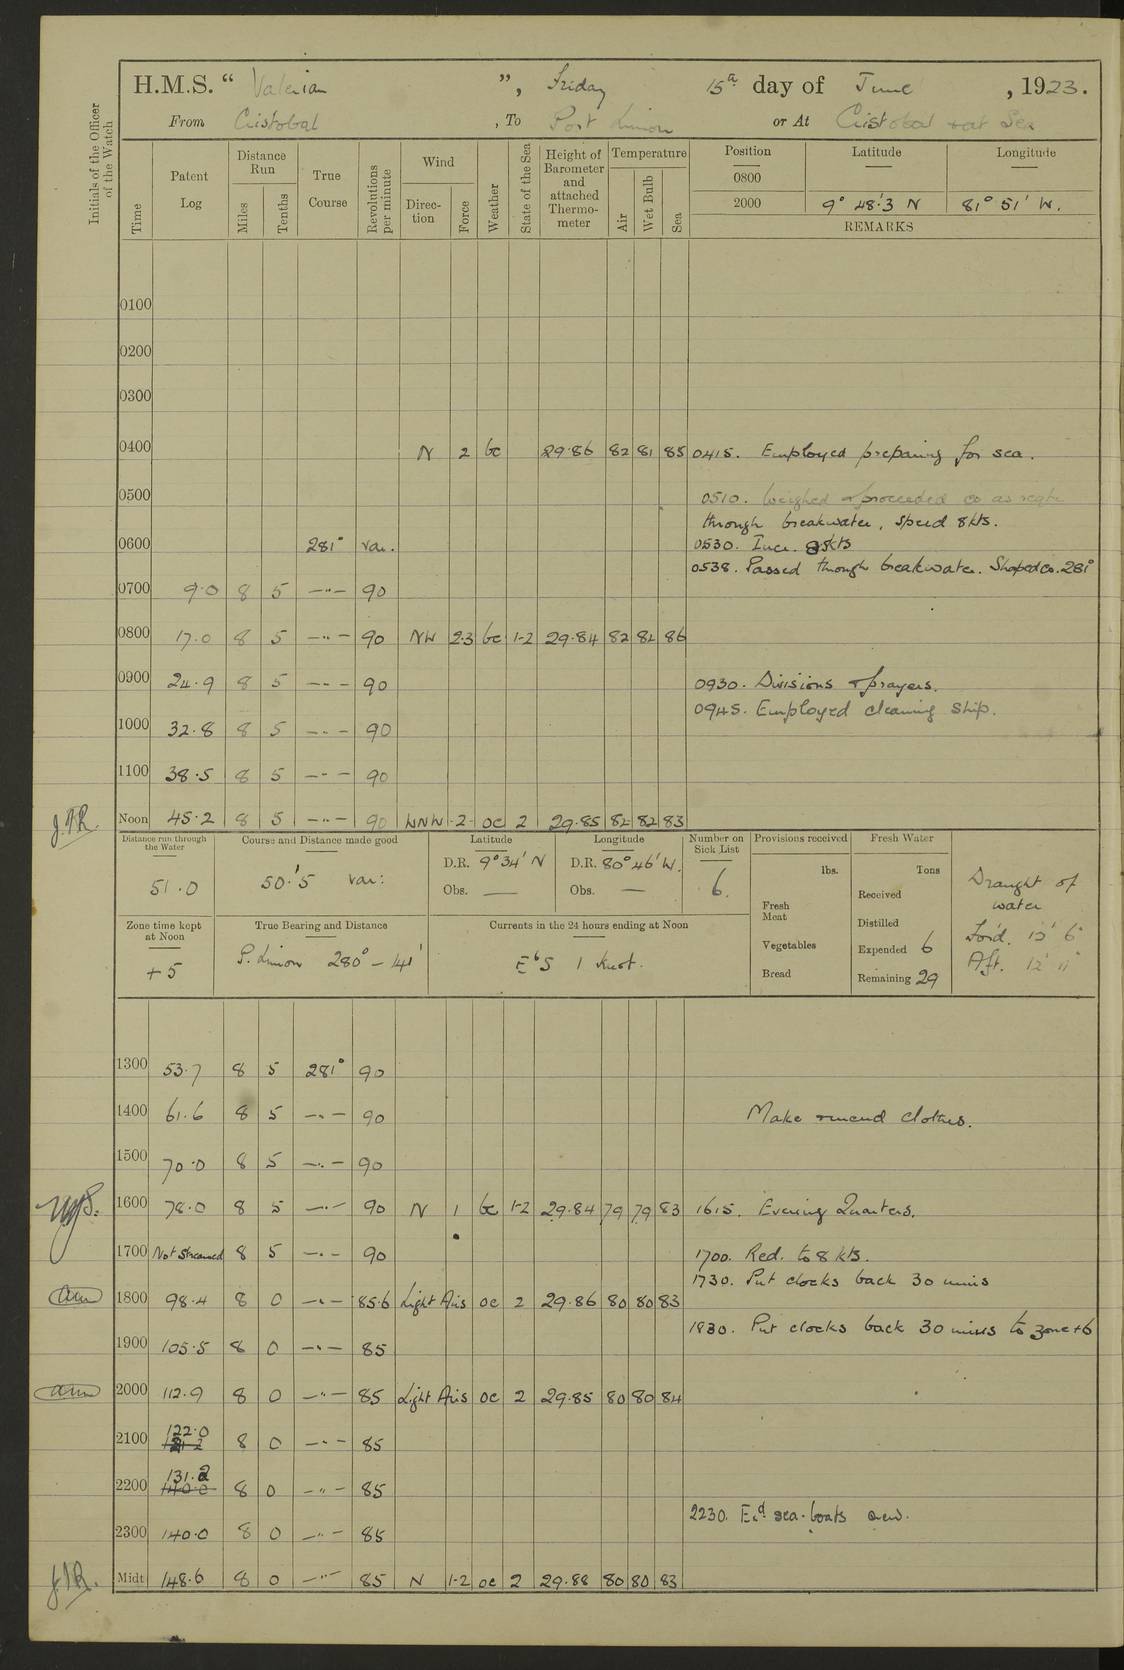 H.M.S. " Valerian ", Friday 15th day of June , 1923.
From Cristobal , To Port Limon or At Cristobal & at Sea
Initials of the Officer of the Watch
Time Patent Log Distance Run Miles Tenths True Course Revolutions per minute Wind Direction Force Weather State of the Sea Height of Barometer and attached Thermometer Temperature Air Wet Bulb Sea Position Latitude Longitude
0800
2000 9° 48'.3 N 81° 51' W.
REMARKS
0100
0200
0300
0400 N 2 bc 29.86 82 81 85 0415. Employed preparing for sea.
0500 0510. Weighed & proceeded co as reqte
through breakwater, speed 8kts.
0600 281° var. 0530. Incr. 8.5kts
0538. Passed through breakwater. Shaped co. 281°
0700 9.0 8 5 —"— 90
0800 17.0 8 5 —"— 90 NW 2.3 bc 1-2 29.84 82 82 86
0900 24.9 8 5 —"— 90 0930. Divisions & prayers.
0945. Employed cleaning ship.
1000 32.8 8 5 —"— 90
1100 38.5 8 5 —"— 90
J.A.R. Noon 45.2 8 5 —"— 90 WNW 2 oc 2 29.85 82 82 83
Distance run through the Water Course and Distance made good Latitude Longitude Number on Sick List Provisions received Fresh Water
51.0 50.'5 var: D.R. 9° 34' N D.R. 80° 46' W. 6 lbs. Tons Draught of water
Obs. — Obs. — Fresh Meat Received
Zone time kept at Noon True Bearing and Distance Currents in the 24 hours ending at Noon Distilled
+5 P. Limon 280° - 141' E b S 1 knot. Vegetables Expended 6 For'd.
Bread Remaining 29 Aft. 12' 11"
1300 53.7 8 5 281° 90
1400 61.6 8 5 —"— 90 Make & mend clothes.
1500 70.0 8 5 —"— 90
1600 78.0 8 5 —"— 90 N 1 bc 1-2 29.84 79 79 83 1615. Evening Quarters.
1700 Not Streamed 8 5 —"— 90 1700. Red. to 8 kts.
1730. Put clocks back 30 mins
1800 98.4 8 0 —"— 85.6 Light Airs oc 2 29.86 80 80 83
1830. Put clocks back 30 mins to zone +6
1900 105.5 8 0 —"— 85
2000 112.9 8 0 —"— 85 Light Airs oc 2 29.85 80 80 84
2100 122.0 8 0 —"— 85
2200 131.2 140.0 8 0 —"— 85
2230. Exd sea-boats crew.
2300 140.0 8 0 —"— 85
J.A.R. Midt 148.6 8 0 —"— 85 N 1-2 oc 2 29.88 80 80 83